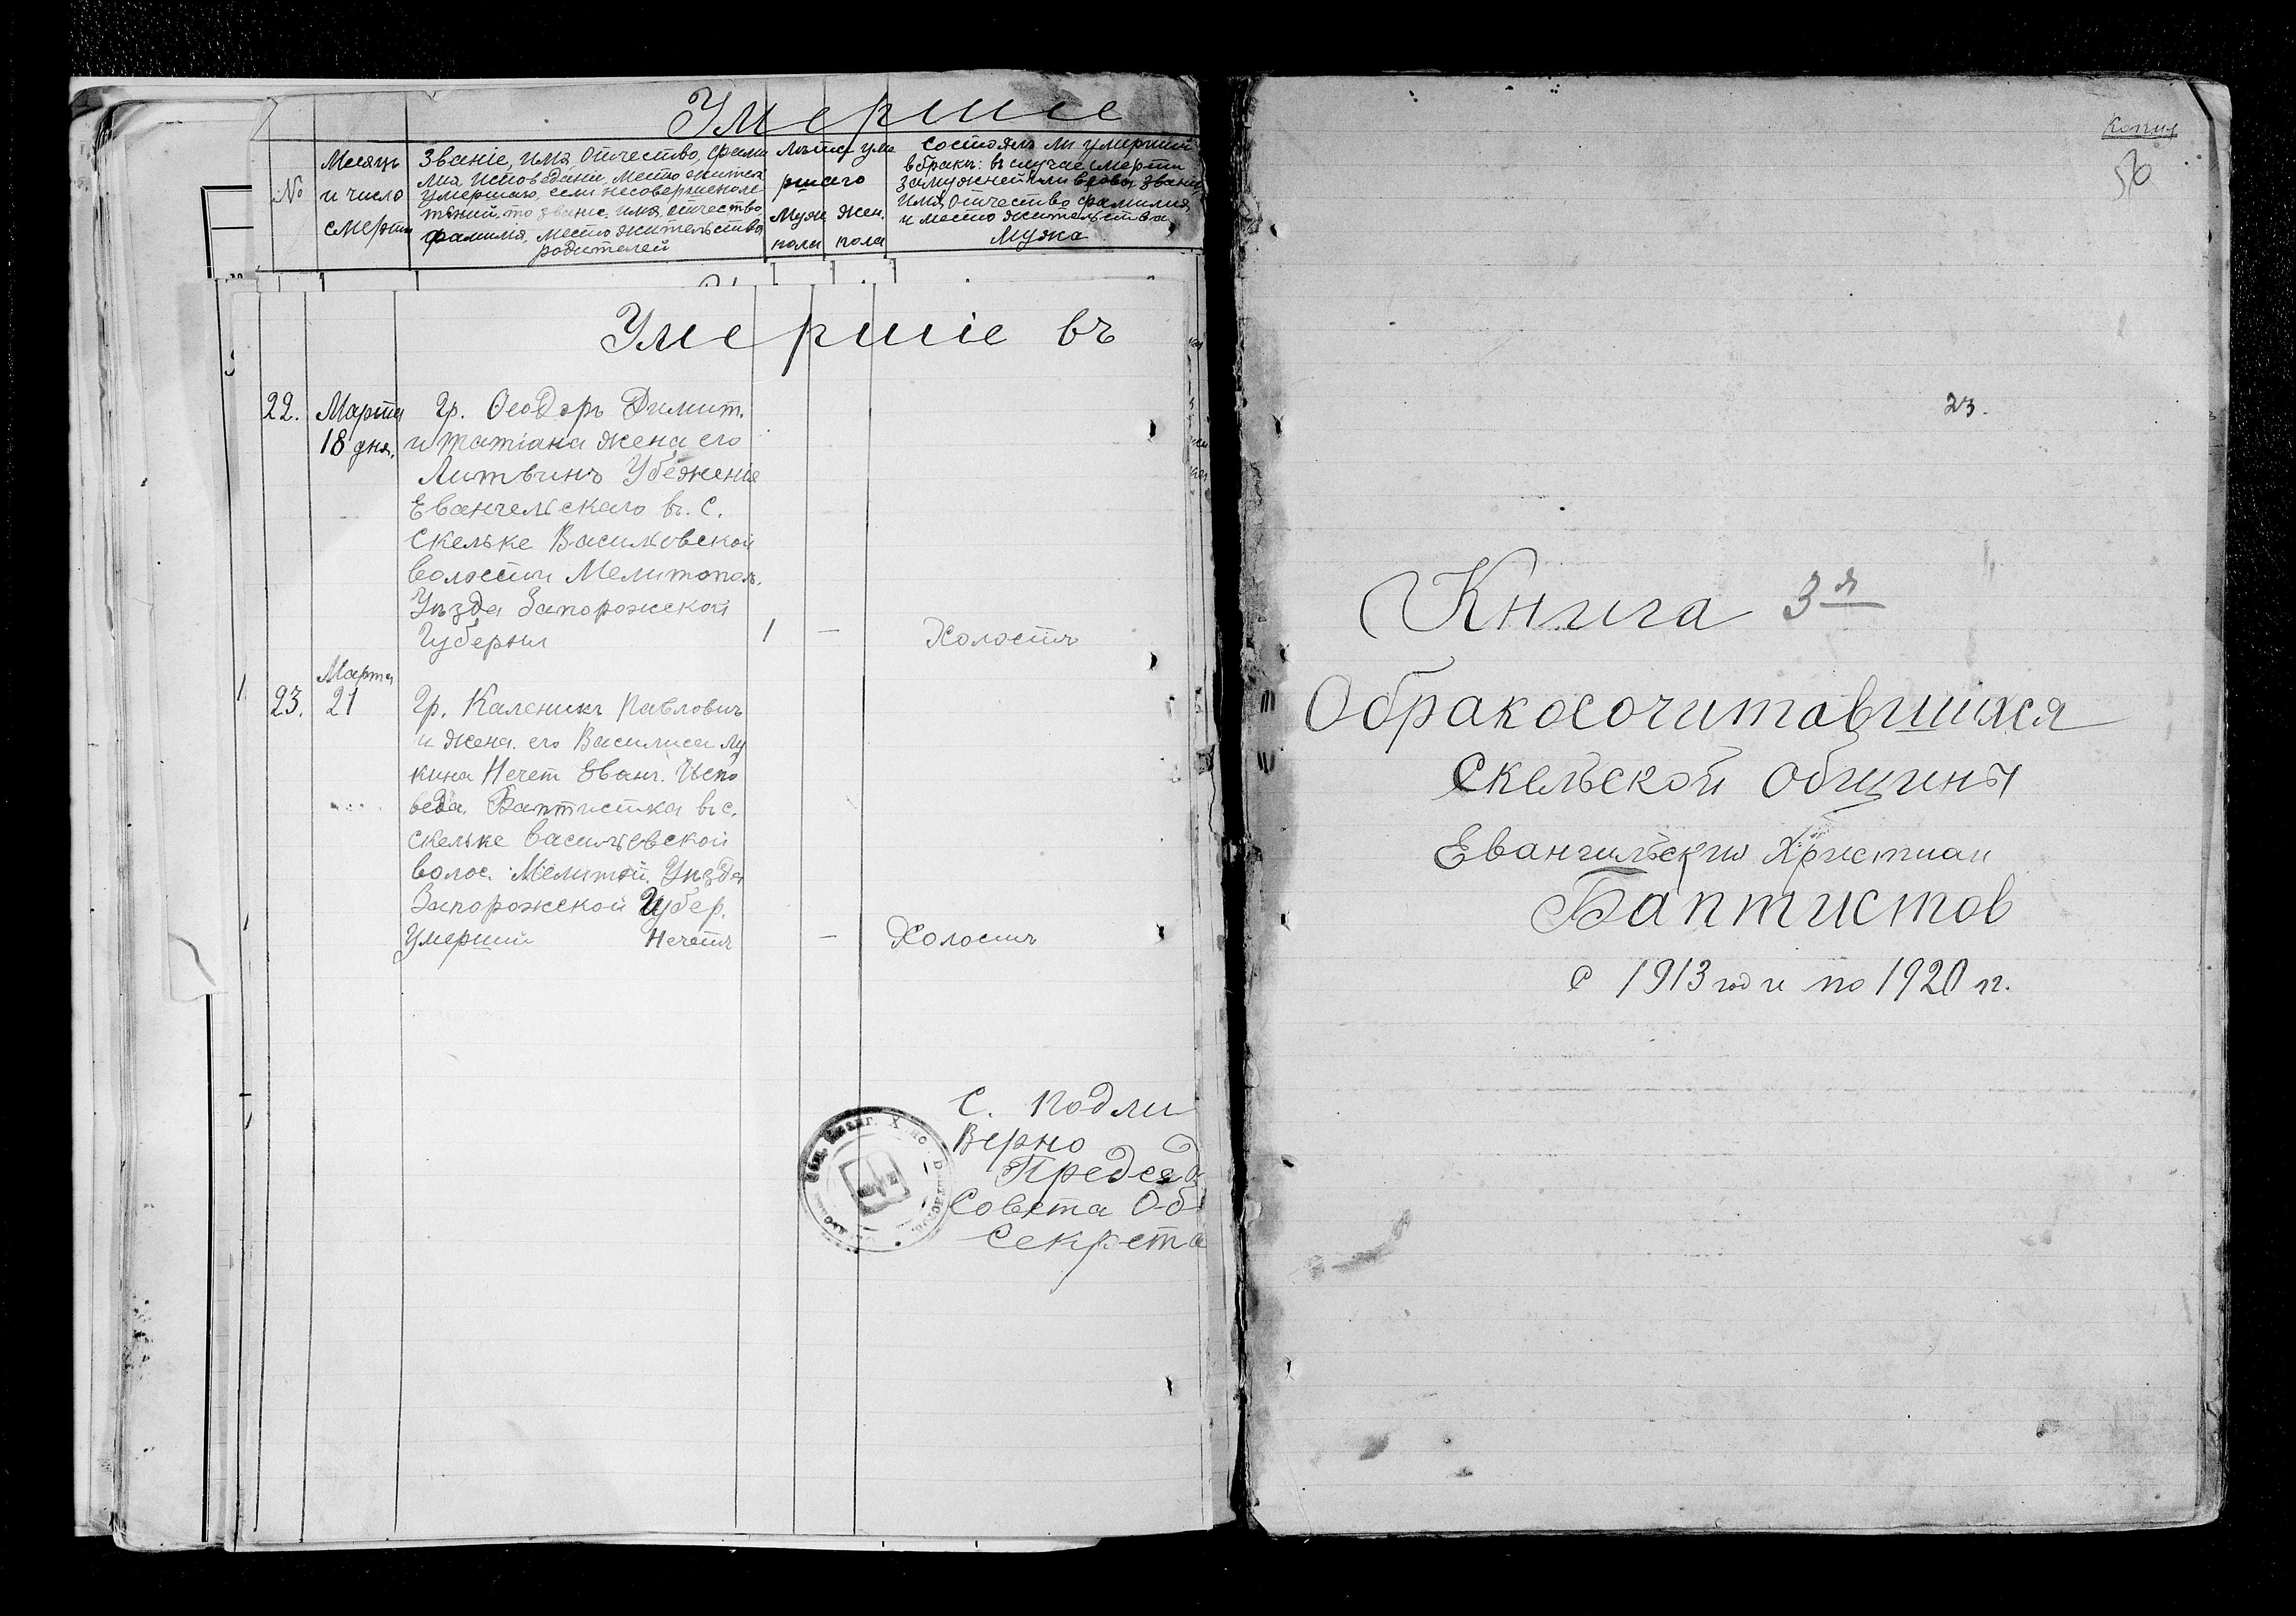 Умершие
№
Месяцъ
и число
смерти
Званіе, имя, отчество, фами
лия, исповедание, место жител
умершаго, если несовершеноле
тний, то звание, имя, отчество,
фамилия, место жительства
родителей
Лѣта уме
ршаго
Муж. жен.
пола пола
Состоялъ ли умерший
в бракѣ: въ случае смерти
замужней или вдовы звание,
имя, отчество, фамилия,
и место жительства
Мужа
Умершіе въ
22. Марта
18 дня.
Гр. Ѳеодоръ Димит.
и татіана жена его
Литвинъ Убежденія
Евангельскаго въ. С.
Скельке Васильевской
волости Мелитопол.
Уѣзда Запорожской
Губернии 1 — Холостъ
Марта
23. 21
Гр. Каленикъ Павловичъ
и жена. его Василиса Лу
кина Нечет Еванг. Испо
веда. Баптистка въ с.
Скельке васильевской
волос. Мелитоп. Уѣзда
Запорожской Губер.
Умерший Нечетъ — Холостъ
С. Подли
Верно
Председ
Совета Об
Секрета
Копия
50
23.
Книга 3я
О бракосочитавшихся
Скельской общины
Евангильских Христиан
Баптистов
с 1913 года по 1920 гг.